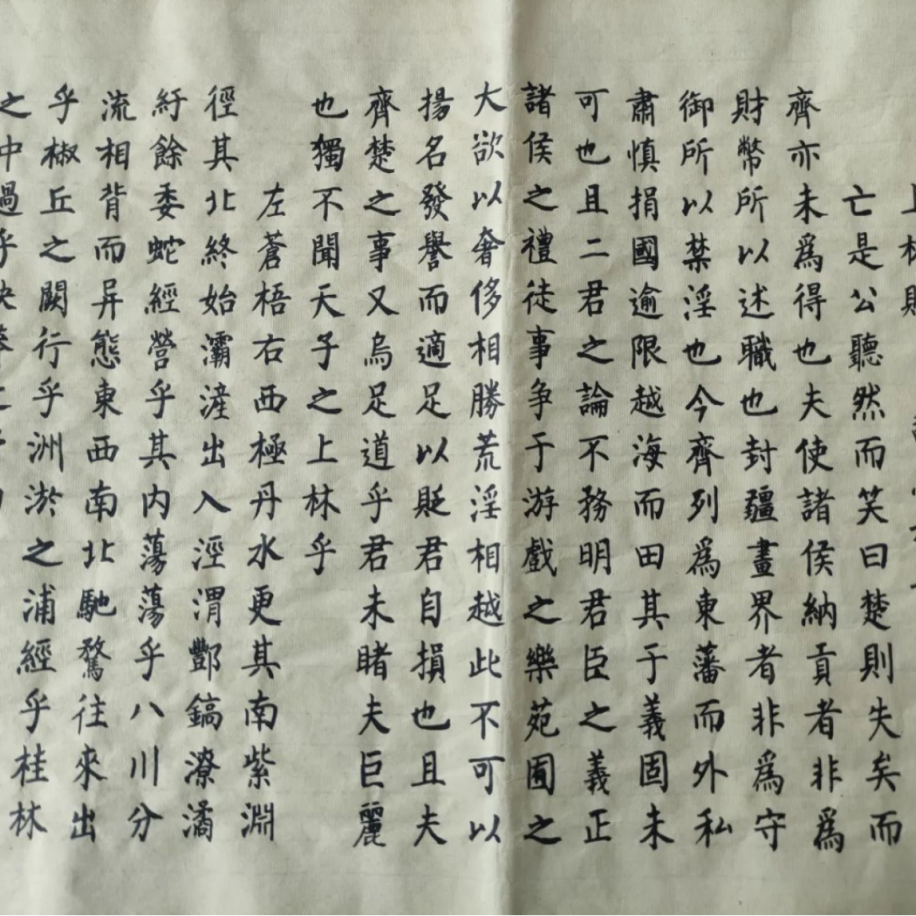 上林賦
亡是公聽然而笑曰楚則失矣而
齊亦未爲得也夫使諸侯納貢者非爲
財幣所以述職也封疆畫界者非爲守
御所以禁淫也今齊列爲東藩而外私
肅慎捐國逾限越海而田其于義固未
可也且二君之論不務明君臣之義正
諸侯之禮徒事争于游戲之樂苑囿之
大欲以奢侈相勝荒淫相越此不可以
揚名發譽而適足以貶君自損也且夫
齊楚之事又烏足道乎君未睹夫巨麗
也獨不聞天子之上林乎
左蒼梧右西極丹水更其南紫淵
徑其北終始灞滻出入涇渭酆鎬潦潏
紆餘委蛇經營乎其内蕩蕩乎八川分
流相背而异態東西南北馳騖往來出
乎椒丘之闕行乎洲淤之浦經乎桂林
之中過乎泱